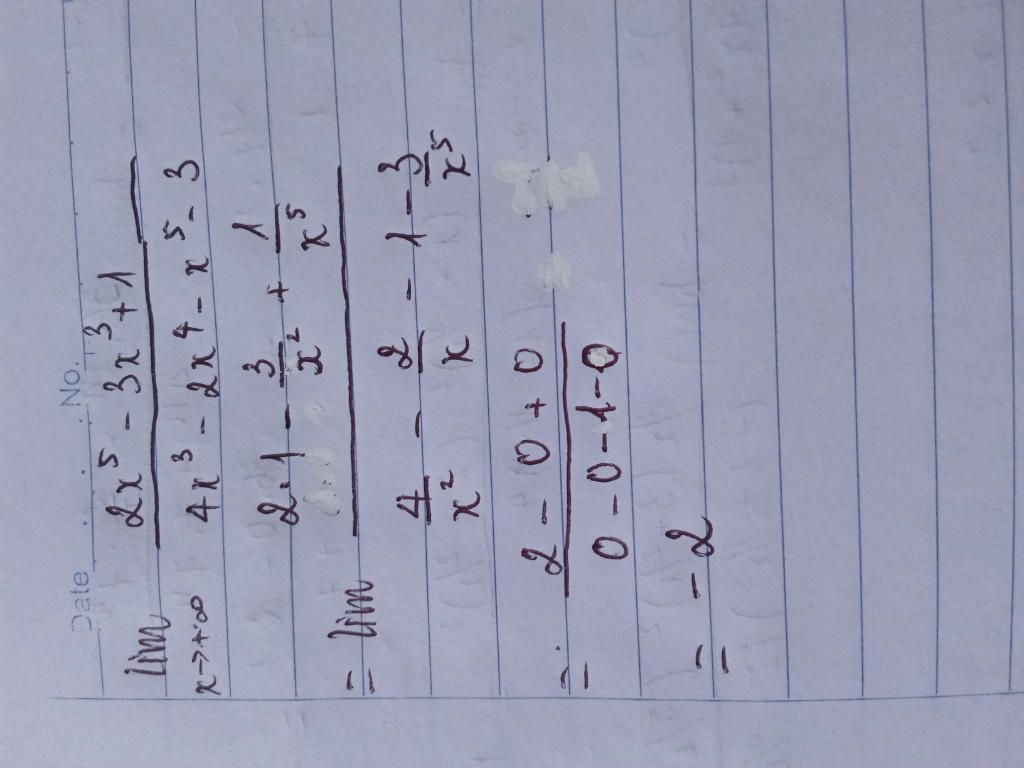 Date No.
lim 2x⁵ - 3x³ + 1
x→+∞ 4x³ - 2x⁴ - x⁵ - 3
2·1 - 3/x² + 1/x⁵
= lim
4/x² - 2/x - 1 - 3/x⁵
2 - 0 + 0
=
0 - 0 - 1 - 0
= - 2